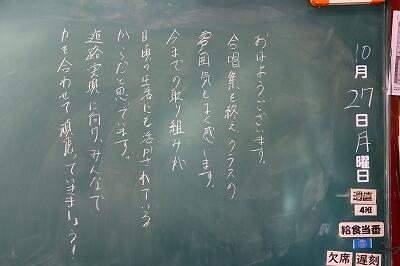 10月27日月曜日
週直
4班
給食当番
欠席 遅刻
おはようございます。
合唱祭を終え、クラスの
雰囲気もよく感じます。
今までの取り組みが
日頃の生活にも活かされている
からだと思っています。
進路実現に向け、みんなで
力を合わせて頑張っていきましょう!